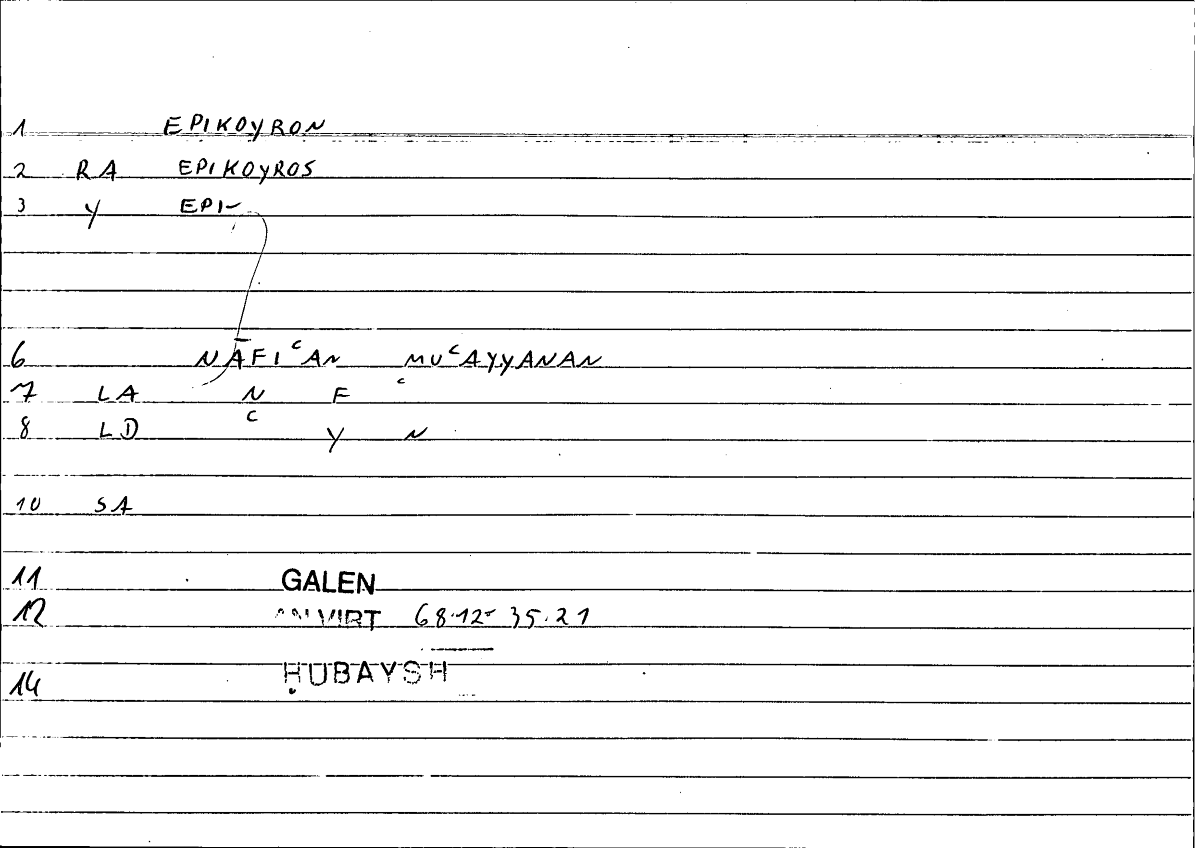 1 EPIKOYRON
2 RA EPIKOYROS
3 Y EPI-
6 NĀFIᶜAN MUᶜAYYANAN
7 LA N F ᶜ
8 LD ᶜ Y N
10 SA
11 GALEN
12 AN VIRT 68.12- 35.21
14 ḤUBAYSH